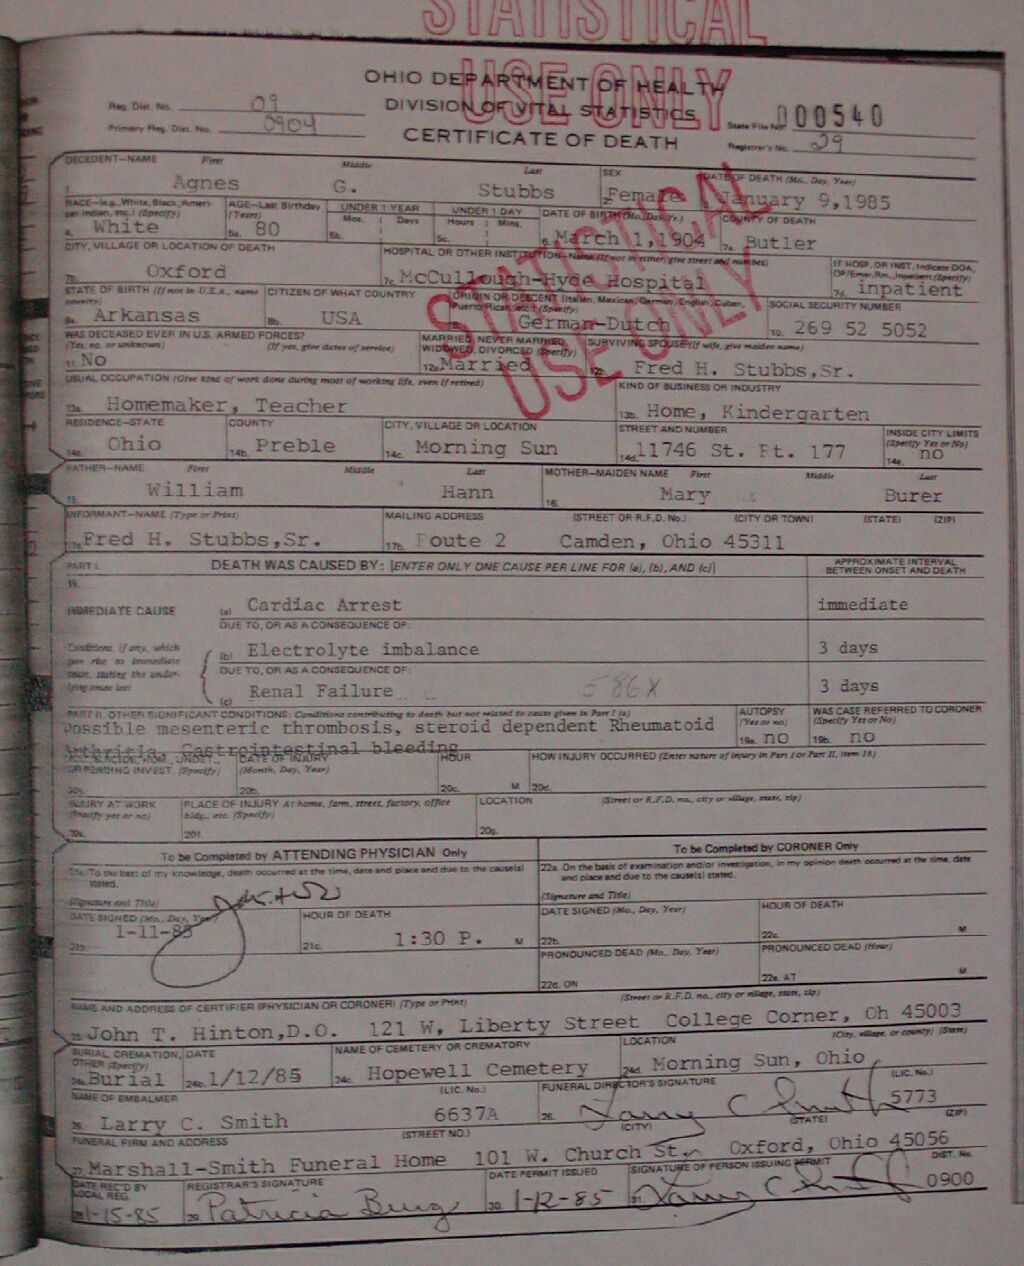 STATISTICAL
USE ONLY
OHIO DEPARTMENT OF HEALTH
DIVISION OF VITAL STATISTICS
CERTIFICATE OF DEATH
Reg. Dist. No. 09
Primary Reg. Dist. No. 0904
State File No. 000540
Registrar's No. 29
DECEDENT—NAME First Middle Last SEX DATE OF DEATH (Mo., Day, Year)
1. Agnes G. Stubbs 2. Female January 9,1985
STATISTICAL
USE ONLY
RACE—(e.g., White, Black, American Indian, etc.) (Specify) AGE—Last Birthday (Years) UNDER 1 YEAR Mos. Days UNDER 1 DAY Hours Mins. DATE OF BIRTH (Mo., Day, Yr.) COUNTY OF DEATH
4. White 5a. 80 5b. 5c. 6. March 1,1904 7a. Butler
CITY, VILLAGE OR LOCATION OF DEATH HOSPITAL OR OTHER INSTITUTION—Name (If not in either, give street and number) IF HOSP. OR INST. Indicate DOA, OP/Emer. Rm., Inpatient (Specify)
7b. Oxford 7c. McCullough-Hyde Hospital 7d. inpatient
STATE OF BIRTH (If not in U.S.A., name country) CITIZEN OF WHAT COUNTRY ORIGIN OR DESCENT (Italian, Mexican, German, English, Cuban, Puerto Rican, etc.) (Specify) SOCIAL SECURITY NUMBER
8a. Arkansas 8b. USA German-Dutch 10. 269 52 5052
WAS DECEASED EVER IN U.S. ARMED FORCES? (Yes, no, or unknown) (If yes, give dates of service) MARRIED, NEVER MARRIED, WIDOWED, DIVORCED (Specify) SURVIVING SPOUSE (If wife, give maiden name)
11. No 12a. Married 12b. Fred H. Stubbs,Sr.
USUAL OCCUPATION (Give kind of work done during most of working life, even if retired) KIND OF BUSINESS OR INDUSTRY
13a. Homemaker, Teacher 13b. Home, Kindergarten
RESIDENCE—STATE COUNTY CITY, VILLAGE OR LOCATION STREET AND NUMBER INSIDE CITY LIMITS (Specify Yes or No)
14a. Ohio 14b. Preble 14c. Morning Sun 14d. 11746 St. Rt. 177 14e. no
FATHER—NAME First Middle Last MOTHER—MAIDEN NAME First Middle Last
15. William Hann 16. Mary Burer
INFORMANT—NAME (Type or Print) MAILING ADDRESS (STREET OR R.F.D. No.) (CITY OR TOWN) (STATE) (ZIP)
17a. Fred H. Stubbs,Sr. 17b. Route 2 Camden, Ohio 45311
PART I. DEATH WAS CAUSED BY: [ENTER ONLY ONE CAUSE PER LINE FOR (a), (b), AND (c)] APPROXIMATE INTERVAL BETWEEN ONSET AND DEATH
18.
IMMEDIATE CAUSE (a) Cardiac Arrest immediate
DUE TO, OR AS A CONSEQUENCE OF:
Conditions, if any, which gave rise to immediate cause, stating the underlying cause last
(b) Electrolyte imbalance 3 days
DUE TO, OR AS A CONSEQUENCE OF:
(c) Renal Failure 586X 3 days
PART II. OTHER SIGNIFICANT CONDITIONS: Conditions contributing to death but not related to cause given in Part I (a) AUTOPSY (Yes or no) WAS CASE REFERRED TO CORONER (Specify Yes or No)
Possible mesenteric thrombosis, steroid dependent Rheumatoid 19a. no 19b. no
Arthritis, Gastrointestinal bleeding
OR PENDING INVEST. (Specify) DATE OF INJURY (Month, Day, Year) HOUR HOW INJURY OCCURRED (Enter nature of injury in Part I or Part II, item 18)
20b. 20c. M 20d.
INJURY AT WORK (Specify yes or no) PLACE OF INJURY At home, farm, street, factory, office bldg., etc. (Specify) LOCATION (Street or R.F.D. no., city or village, state, zip)
20e. 20f. 20g.
To be Completed by ATTENDING PHYSICIAN Only To be Completed by CORONER Only
21a. To the best of my knowledge, death occurred at the time, date and place and due to the cause(s) stated. 22a. On the basis of examination and/or investigation, in my opinion death occurred at the time, date and place and due to the cause(s) stated.
(Signature and Title) (Signature and Title)
DATE SIGNED (Mo., Day, Year) HOUR OF DEATH DATE SIGNED (Mo., Day, Year) HOUR OF DEATH
21b. 1-11-85 21c. 1:30 P. M 22b. 22c. M
PRONOUNCED DEAD (Mo., Day, Year) PRONOUNCED DEAD (Hour)
22d. ON 22e. AT M
NAME AND ADDRESS OF CERTIFIER (PHYSICIAN OR CORONER) (Type or Print) (Street or R.F.D. no., city or village, state, zip)
23. John T. Hinton,D.O. 121 W. Liberty Street College Corner, Oh 45003
BURIAL, CREMATION, OTHER (Specify) DATE NAME OF CEMETERY OR CREMATORY LOCATION (City, village, or county) (State)
24a. Burial 24b. 1/12/85 24c. Hopewell Cemetery 24d. Morning Sun, Ohio
NAME OF EMBALMER (LIC. No.) FUNERAL DIRECTOR'S SIGNATURE (LIC. No.)
25. Larry C. Smith 6637A 26. Larry C Smith 5773
FUNERAL FIRM AND ADDRESS (STREET NO.) (CITY) (STATE) (ZIP)
27. Marshall-Smith Funeral Home 101 W. Church St. Oxford, Ohio 45056
DATE REC'D BY LOCAL REG. REGISTRAR'S SIGNATURE DATE PERMIT ISSUED SIGNATURE OF PERSON ISSUING PERMIT DIST. No.
28. 1-15-85 29. Patricia 30. 1-12-85 31. Larry C Smith 0900